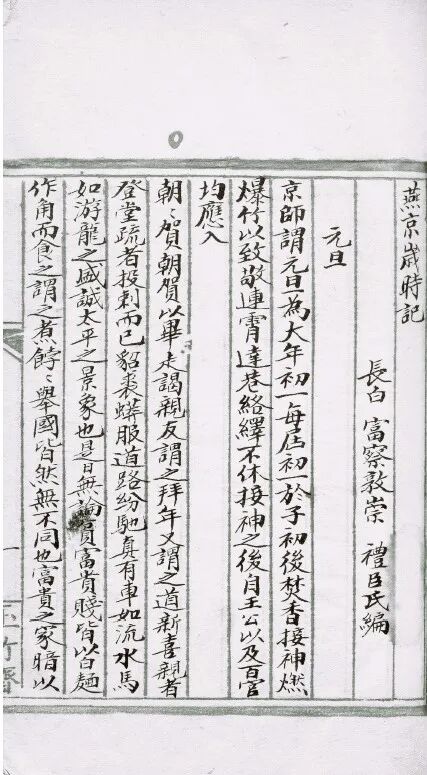 燕京歲時記
長白 富察敦崇 禮臣氏編
元旦
京師謂元旦為大年初一每屆初一於子初後焚香接神燃
爆竹以致敬連霄達巷絡繹不休接神之後自王公以及百官
均應入
朝〻賀朝賀以畢走謁親友謂之拜年又謂之道新喜親者
登堂疏者投刺而已貂裘蟒服道路紛馳真有車如流水馬
如游龍之盛誠太平之景象也是日無論貧富貴賤皆以白麵
作角而食之謂之煮餑〻舉國皆然無不同也富貴之家暗以